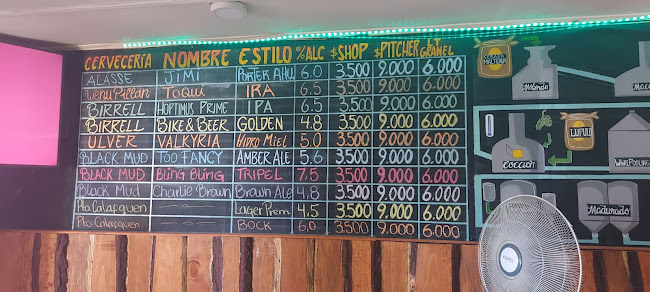 CERVECERÍA NOMBRE ESTILO %ALC $SHOP $PITCHER 1LT GRANEL
ALASSE JIMI PORTER AHU. 6.0 3.500 9.000 6.000
Wenu Pillan Toqui IRA 6.5 3.500 9.000 6.000
BIRRELL HOPTIMUS PRIME IPA 6.5 3.500 9.000 6.000
BIRRELL BIKE & BEER GOLDEN 4.8 3.500 9.000 6.000
ULVER VALKYRIA HIDRO MIEL 5.0 3.500 9.000 6.000
BLACK MUD TOO FANCY AMBER ALE 5.6 3.500 9.000 6.000
BLACK MUD Bling Bling TRIPEL 7.5 3.500 9.000 6.000
Black Mud Charlie Brown Brown Ale 4.8 3.500 9.000 6.000
Pto Calafquen Lager Prem. 4.5 3.500 9.000 6.000
Pto Calafquen BOCK 6.0 3500 9.000 6.000
MALTEADA
Molienda
LUPULO
COCCIÓN
WHIRLPOOLING
Madurado